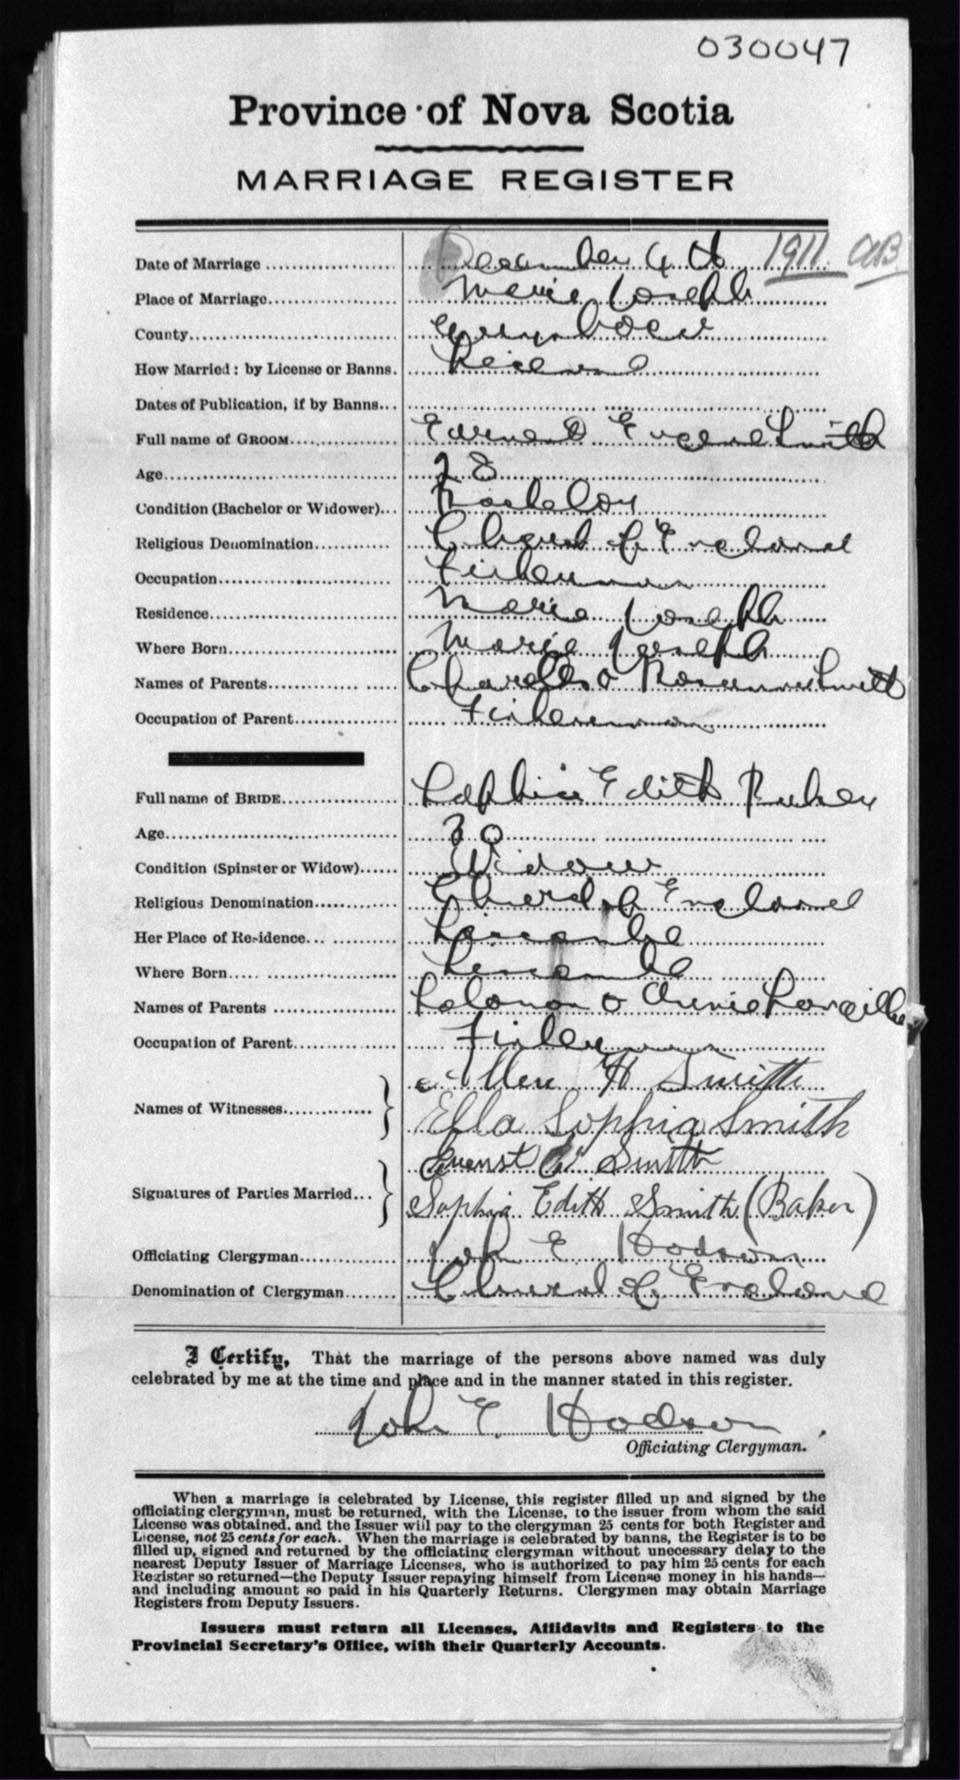 030047
Province of Nova Scotia
MARRIAGE REGISTER
Date of Marriage December 4th 1911 AB
Place of Marriage Marie Joseph
County Guysboro
How Married: by License or Banns. License
Dates of Publication, if by Banns
Full name of GROOM Eugene Smith
Age 28
Condition (Bachelor or Widower) Bachelor
Religious Denomination Church of England
Occupation Fisherman
Residence Marie Joseph
Where Born Marie Joseph
Names of Parents Charles & Smith
Occupation of Parent Fisherman
Full name of BRIDE Sophia Edith Baker
Age 30
Condition (Spinster or Widow) Widow
Religious Denomination Church of England
Her Place of Residence Liscombe
Where Born Liscombe
Names of Parents Solomon & Annie
Occupation of Parent Fisherman
Allen H Smith
Names of Witnesses
Ella Sophia Smith
Ernest E Smith
Signatures of Parties Married
Sophia Edith Smith (Baker)
Officiating Clergyman John E Hodson
Denomination of Clergyman Church of England
I Certify, That the marriage of the persons above named was duly
celebrated by me at the time and place and in the manner stated in this register.
John E. Hodson
Officiating Clergyman.
When a marriage is celebrated by License, this register filled up and signed by the
officiating clergyman, must be returned, with the License, to the issuer from whom the said
License was obtained, and the Issuer will pay to the clergyman 25 cents for both Register and
License, not 25 cents for each. When the marriage is celebrated by banns, the Register is to be
filled up, signed and returned by the officiating clergyman without unnecessary delay to the
nearest Deputy Issuer of Marriage Licenses, who is authorized to pay him 25 cents for each
Register so returned—the Deputy Issuer repaying himself from License money in his hands—
and including amount so paid in his Quarterly Returns. Clergymen may obtain Marriage
Registers from Deputy Issuers.
Issuers must return all Licenses, Affidavits and Registers to the
Provincial Secretary's Office, with their Quarterly Accounts.